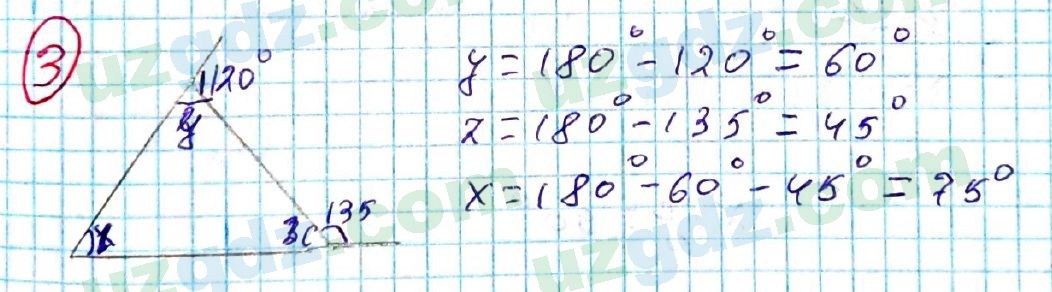 3
120°
y
x
z
135
y = 180° - 120° = 60°
z = 180° - 135° = 45°
x = 180° - 60° - 45° = 75°
uzgdz.com